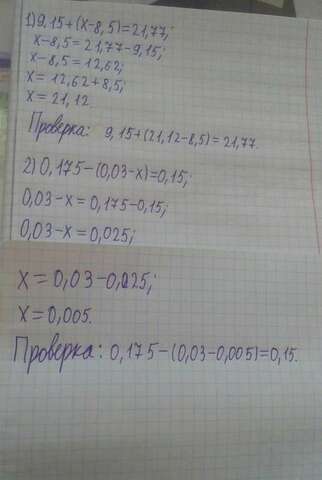 1) 9,15+(x-8,5)=21,77;
x-8,5=21,77-9,15;
x-8,5=12,62;
x=12,62+8,5;
x=21,12.
Проверка: 9,15+(21,12-8,5)=21,77.
2) 0,175-(0,03-x)=0,15;
0,03-x=0,175-0,15;
0,03-x=0,025;
x=0,03-0,025;
x=0,005.
Проверка: 0,175-(0,03-0,005)=0,15.